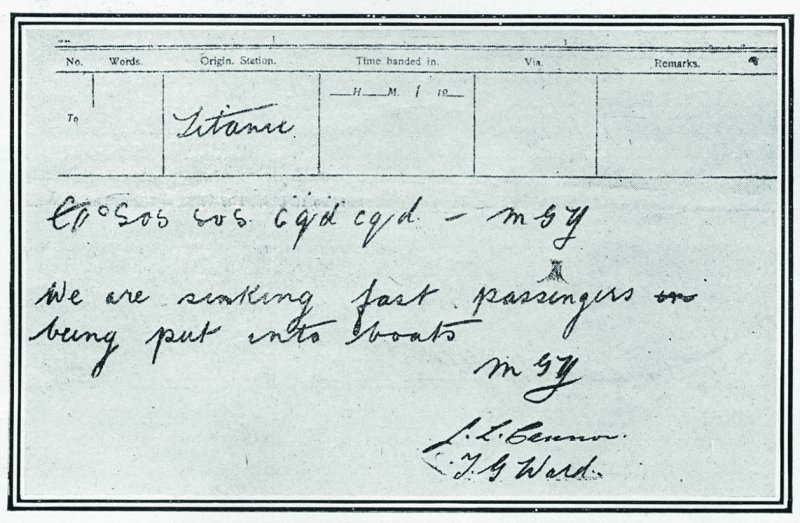 No. Words. Origin. Station. Time handed in. Via. Remarks.
H. M. / 19
To
Titanic
SOS SOS cqd cqd – MGY
We are sinking fast passengers
being put into boats
MGY
T G Ward.